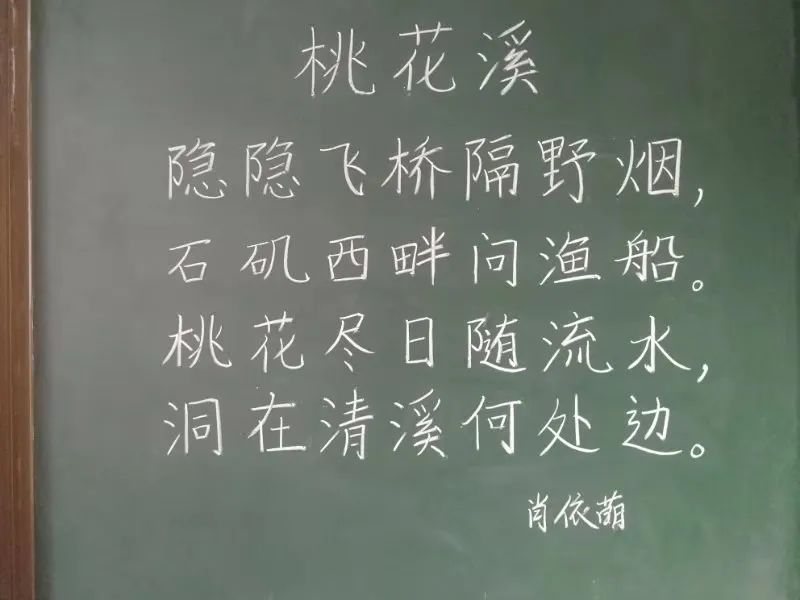 桃花溪
隐隐飞桥隔野烟，
石矶西畔问渔船。
桃花尽日随流水，
洞在清溪何处边。
肖依萌